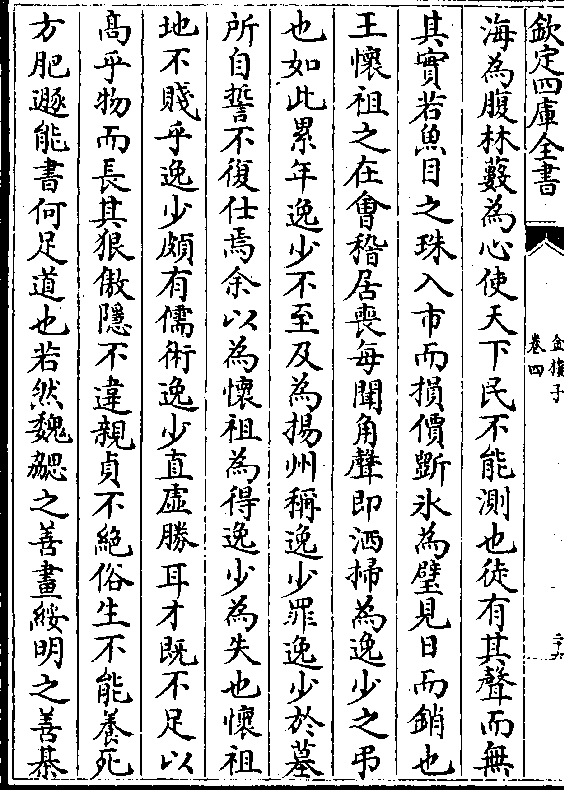 欽定四庫全書
金樓子
卷四
二十六
海為腹林藪為心使天下民不能測也徒有其聲而無
其實若魚目之珠入市而損價斲氷為璧見日而銷也
王懷祖之在會稽居喪每聞角聲即洒掃為逸少之弔
也如此累年逸少不至及為揚州稱逸少罪逸少於墓
所自誓不復仕焉余以為懷祖為得逸少為失也懷祖
地不賤乎逸少頗有儒術逸少直虛勝耳才既不足以
髙乎物而長其狠傲隱不違親貞不絶俗生不能養死
方肥遯能書何足道也若然魏勰之善畫綏明之善棊